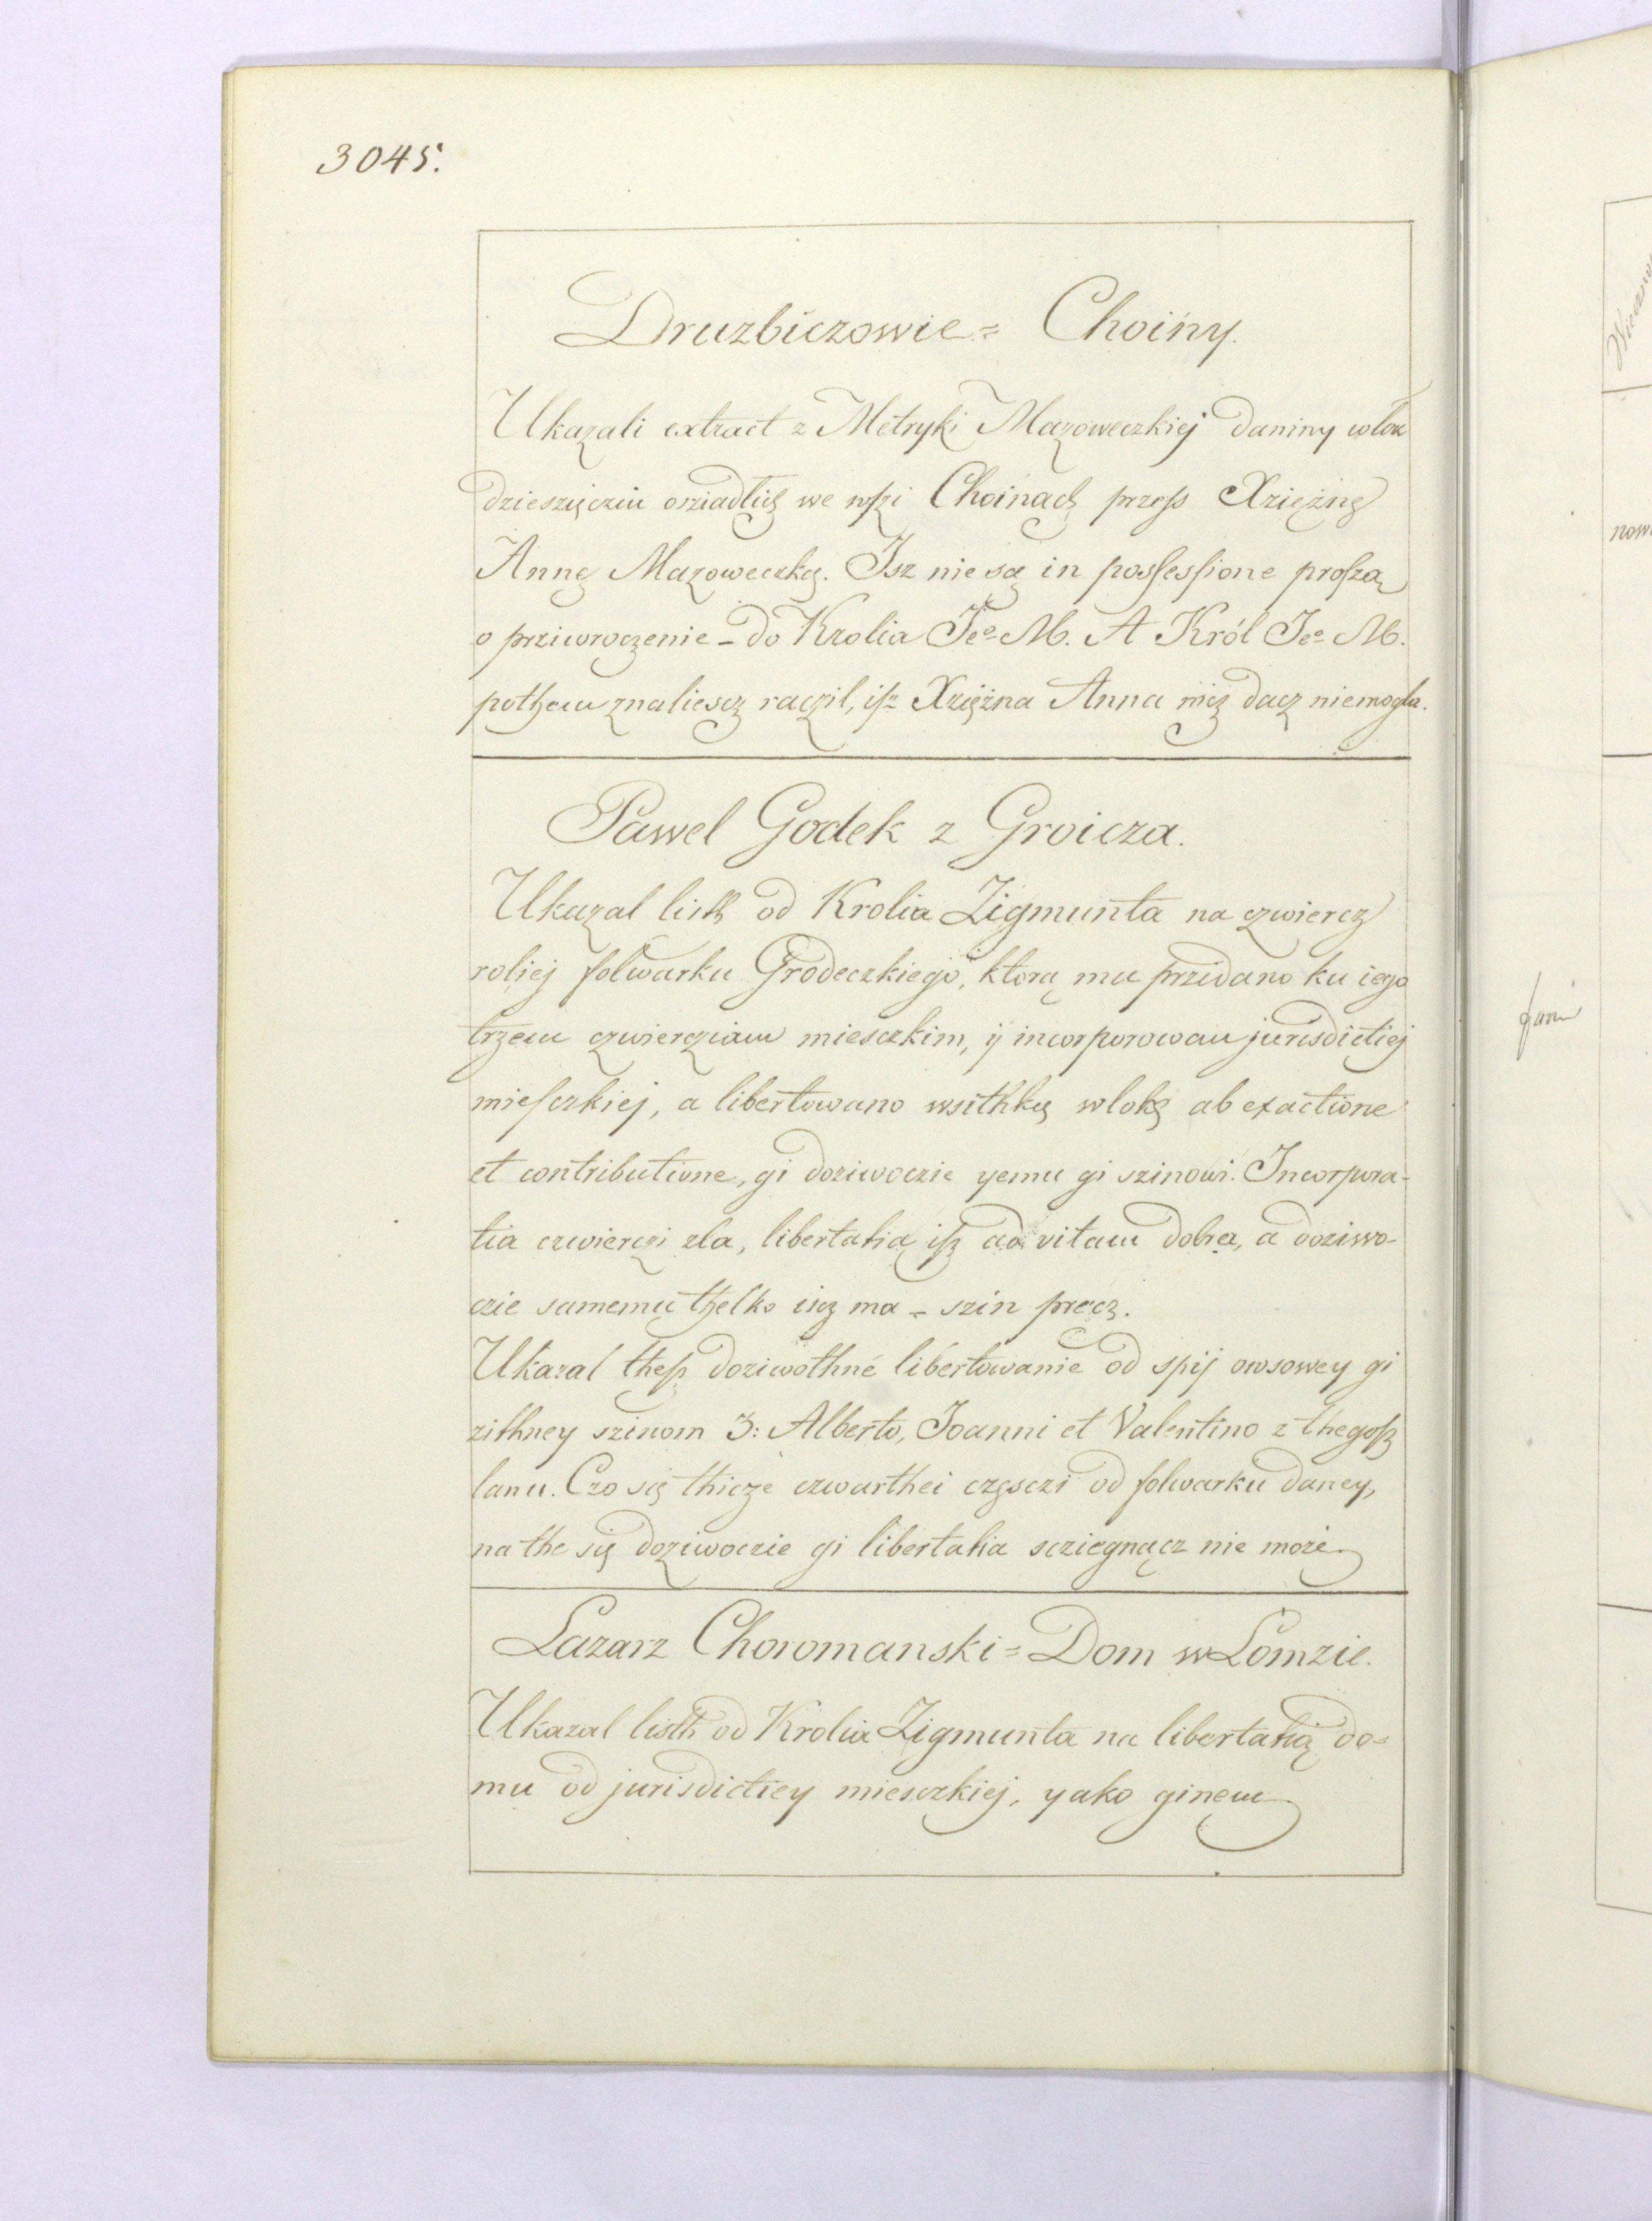 3045.
Druzbiczowie = Choiny.
Ukazali extract z Metryki Mazoweczkiej daniny wlok
dzieszięcziu osziadlich we wszi Choinach przess Xzięznę
Annę Mazoweczkę. Isz nie są in possessione proszą
o prziwroczenie - do Krolia Jeo M. A Król Jeo M.
pothem znaliescz raczil, isz Xziężna Anna nicz dacz niemogla.
Pawel Godek z Groicza.
Ukazal listh od Krolia Zigmunta na czwiercz
roliej folwarku Grodeczkiego, ktorą mu przidano ku iego
trzem czwercziam miesczkim, ij incorporowan jurisdictiej
miesczkiej, a libertowano wsithkę wlokę ab exactione
et contributione, gi doziwoczie yemu gi szinowi. Incorpora-
tia czwierczi zla, libertatią isz ad vitam dobra, a doziwo-
czie samemu thelko iscz ma - szin precz.
Ukazal thesz doziwothne libertowanie od spij owsowey gi
zithney szinom 3: Alberto, Joanni et Valentino z thegosz
lanu. Czo się thicze czwarthei częsczi od folwarku daney,
na the się doziwoczie gi libertatia scziegnącz nie może
Lazarz Choromanski = Dom w Lomzie.
Ukazal listh od Krolia Zigmunta na libertatią do=
mu od jurisdictiey miesczkiej, yako ginem